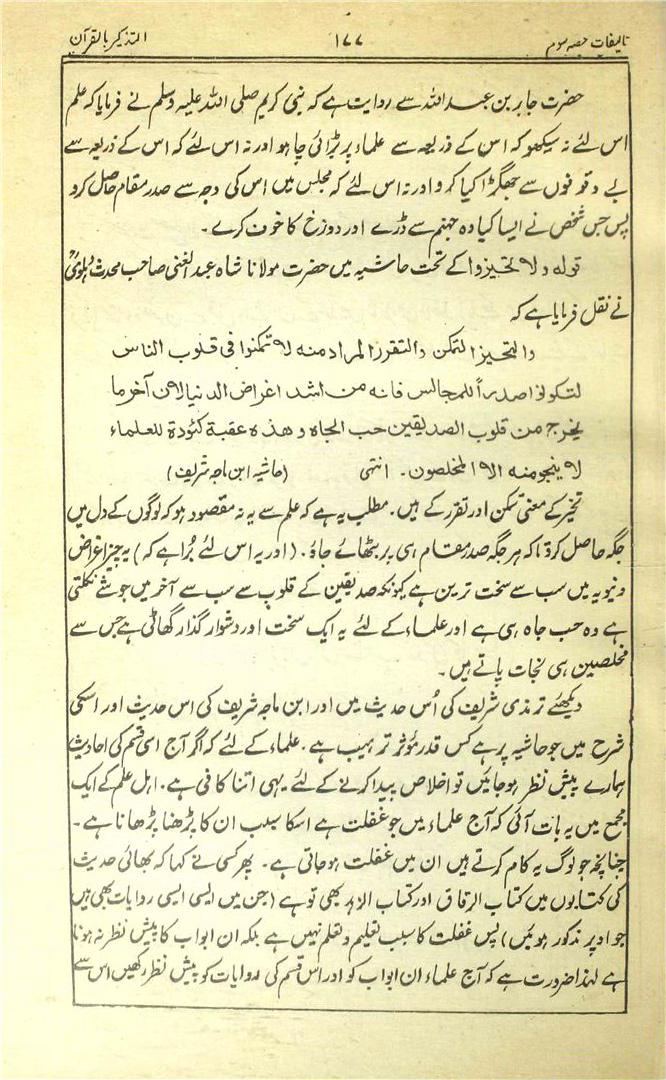 تالیفات حصہ سوم ۱۷۷ التذکیر بالقرآن
حضرت جابر بن عبداللہ سے روایت ہے کہ نبی کریم صلی اللہ علیہ وسلم نے فرمایا کہ علم
اس لئے نہ سیکھو کہ اس کے ذریعہ سے علماء پر بڑائی چاہو اور نہ اس لئے کہ اس کے ذریعہ سے
بے وقوفوں سے جھگڑا کیا کرو اور نہ اس لئے کہ مجلس میں اس کی وجہ سے صدر مقام حاصل کرو
پس جس شخص نے ایسا کیا وہ جہنم سے ڈرے اور دوزخ کا خوف کرے۔
قولہ ولا تحیزوا کے تحت حاشیہ میں حضرت مولانا شاہ عبدالغنی صاحب محدث دہلویؒ
نے نقل فرمایا ہے کہ
والتحیز التمکن والتقرر المراد منہ لا تمکنوا فی قلوب الناس
لتکونوا صدراً للمجالس فانہ من اشد اغراض الدنیا لان آخر ما
یخرج من قلوب الصدیقین حب الجاہ وھذہ عقبة کئودة للعلماء
لا ینجو منہ الا المخلصون۔ انتھی (حاشیہ ابن ماجہ شریف)
تحیز کے معنی تمکن اور تقرر کے ہیں۔ مطلب یہ ہے کہ علم سے یہ نہ مقصود ہو کہ لوگوں کے دل میں
جگہ حاصل کرو تاکہ ہر جگہ صدر مقام ہی پر بٹھائے جاؤ۔ (اور یہ اس لئے بُرا ہے کہ) یہ چیز اغراض
دنیویہ میں سب سے سخت ترین ہے کیونکہ صدیقین کے قلوب سے سب سے آخر میں جو شے نکلتی
ہے وہ حب جاہ ہی ہے اور علماء کے لئے یہ ایک سخت اور دشوار گذار گھاٹی ہے جس سے
مخلصین ہی نجات پاتے ہیں۔
دیکھئے ترمذی شریف کی اُس حدیث میں اور ابن ماجہ شریف کی اس حدیث اور اسکی
شرح میں جو حاشیہ پر ہے کس قدر مؤثر ترہیب ہے۔ علماء کے لئے کہ اگر آج اسی قسم کی احادیث
ہمارے پیش نظر ہو جائیں تو اخلاص پیدا کرنے کے لئے یہی اتنا کافی ہے۔ اہل علم کے ایک
مجمع میں یہ بات آئی کہ آج علماء میں جو غفلت ہے اسکا سبب ان کا پڑھنا پڑھانا ہے۔
چنانچہ جو لوگ یہ کام کرتے ہیں ان میں غفلت ہو جاتی ہے۔ پھر کسی نے کہا کہ بھائی حدیث
کی کتابوں میں کتاب الرقاق اور کتاب الزہد بھی تو ہے (جن میں ایسی ایسی روایات بھی ہیں
جو اوپر مذکور ہوئیں) پس غفلت کا سبب تعلیم و تعلم نہیں ہے بلکہ ان ابواب کا پیش نظر نہ ہونا
ہے لہٰذا ضرورت ہے کہ آج علماء ان ابواب کو اور اس قسم کی روایات کو پیش نظر رکھیں اس سے